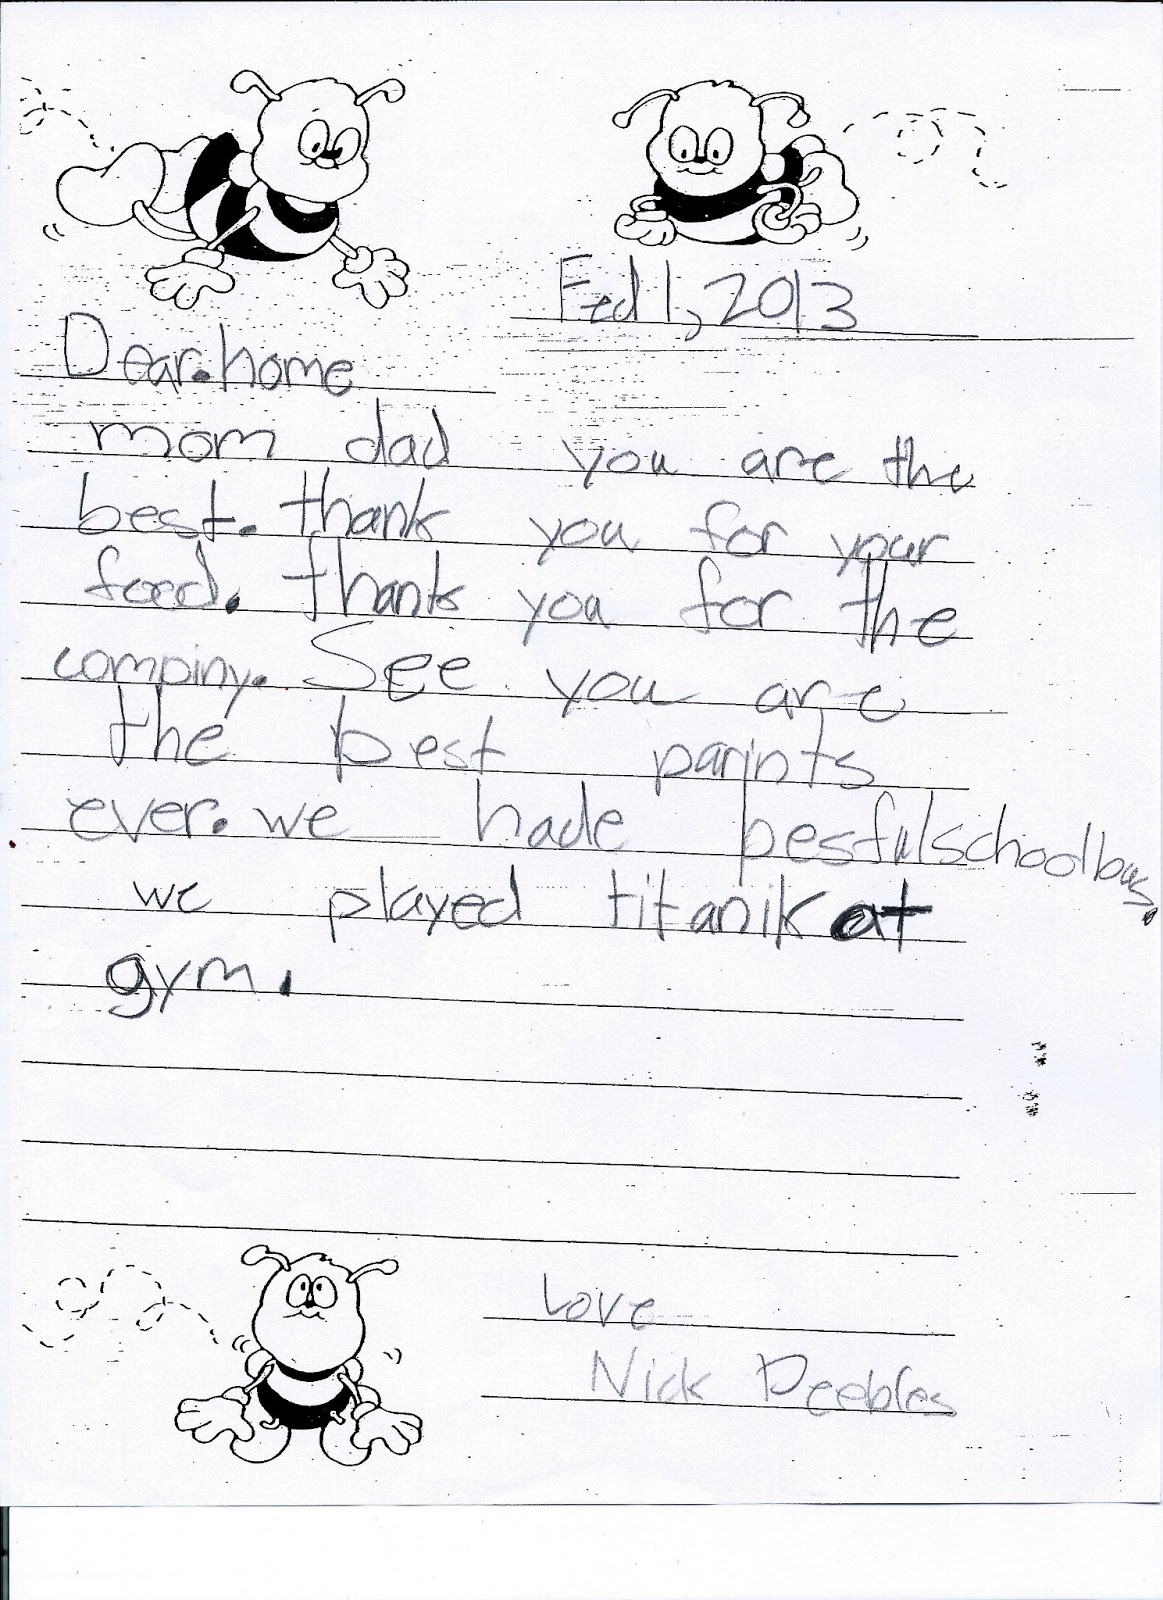 Fed 1, 2013
Dear.home
mom dad you are the
best. thank you for your
food. thank you for the
compiny. See you are
the best parints
ever. we hade pesfulschoolbus.
we played titanik at
gym.
Love
Nick Peebles